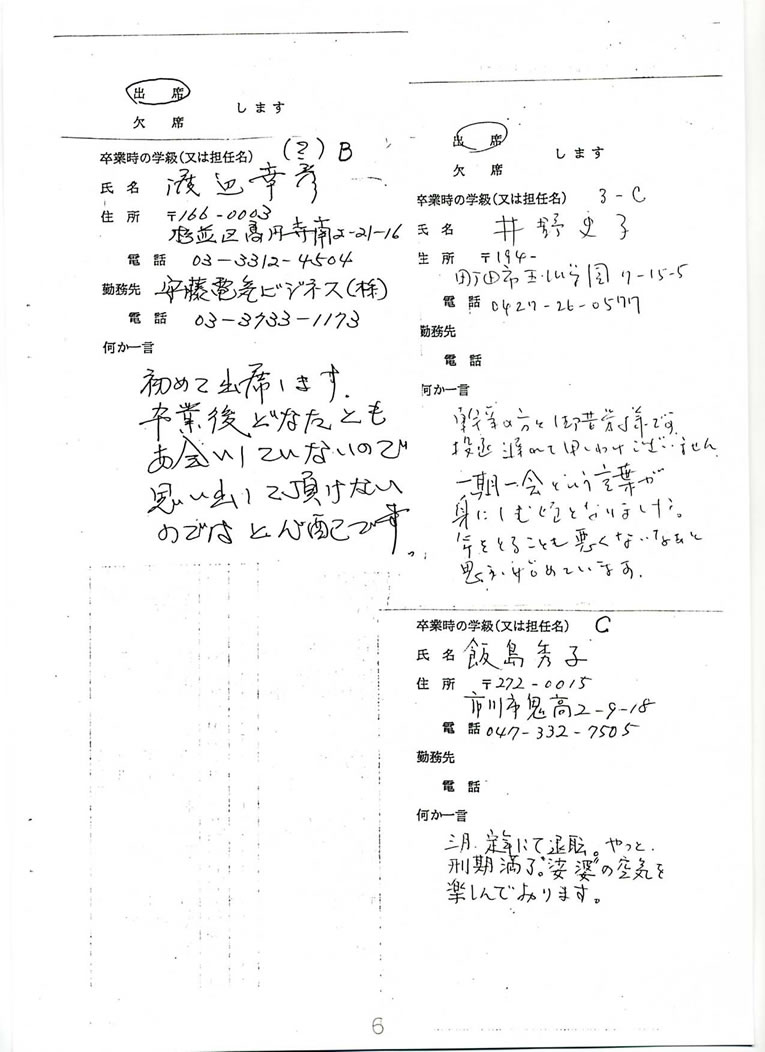 出 席
欠 席
します
卒業時の学級(又は担任名) (3) B
氏 名 渡辺幸彦
住 所 〒166-0003
杉並区高円寺南2-21-16
電 話 03-3312-4504
勤務先 安藤電気ビジネス(株)
電 話 03-3733-1173
何か一言
初めて出席します.
卒業後どなたとも
お会いしていないので
思い出して頂けない
のではと心配です。
出 席
欠 席
します
卒業時の学級(又は担任名) 3-C
氏 名 井野史子
住 所 〒194-
町田市玉川学園7-15-5
電 話 0427-26-0577
勤務先
電 話
何か一言
幹事の方々御苦労様です。
投函遅れて申しわけございません
一期一会という言葉が
身にしむ じとなりました。
年をとることも悪くないなあと
思い始めています.
卒業時の学級(又は担任名) C
氏 名 飯島秀子
住 所 〒272-0015
市川市鬼高2-9-18
電 話 047-332-7505
勤務先
電 話
何か一言
三月.定年にて退職。やっと.
刑期満了。"娑婆"の空気を
楽しんでおります。
6